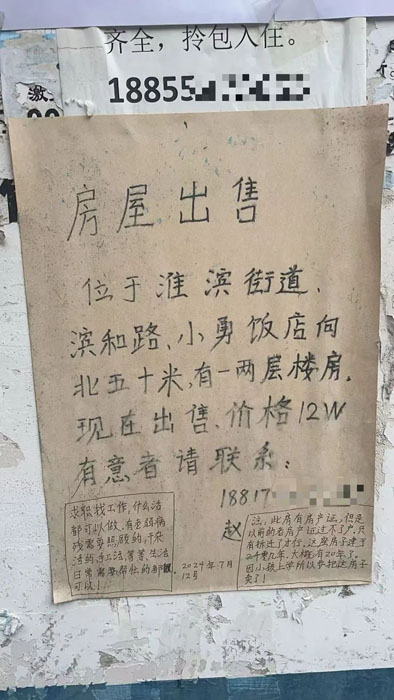 齐全，拎包入住。
18855
房屋出售
位于淮滨街道、
滨和路、小勇饭店向
北五十米，有一两层楼房，
现在出售、价格12W
有意者请联系：
18817
赵
求职找工作，什么活
都可以做、有老弱病
残需要照顾的，干杂
活的，和工活，等等，生活
日常需要帮忙的都
可以！
2024年7月
12号
注，此房有房产证，但是
以前的老房产证过不了户，只
有拆迁了才行、这房子建于
2千零几年、大概有20年了。
因小孩上学所以要把这房子
卖了！